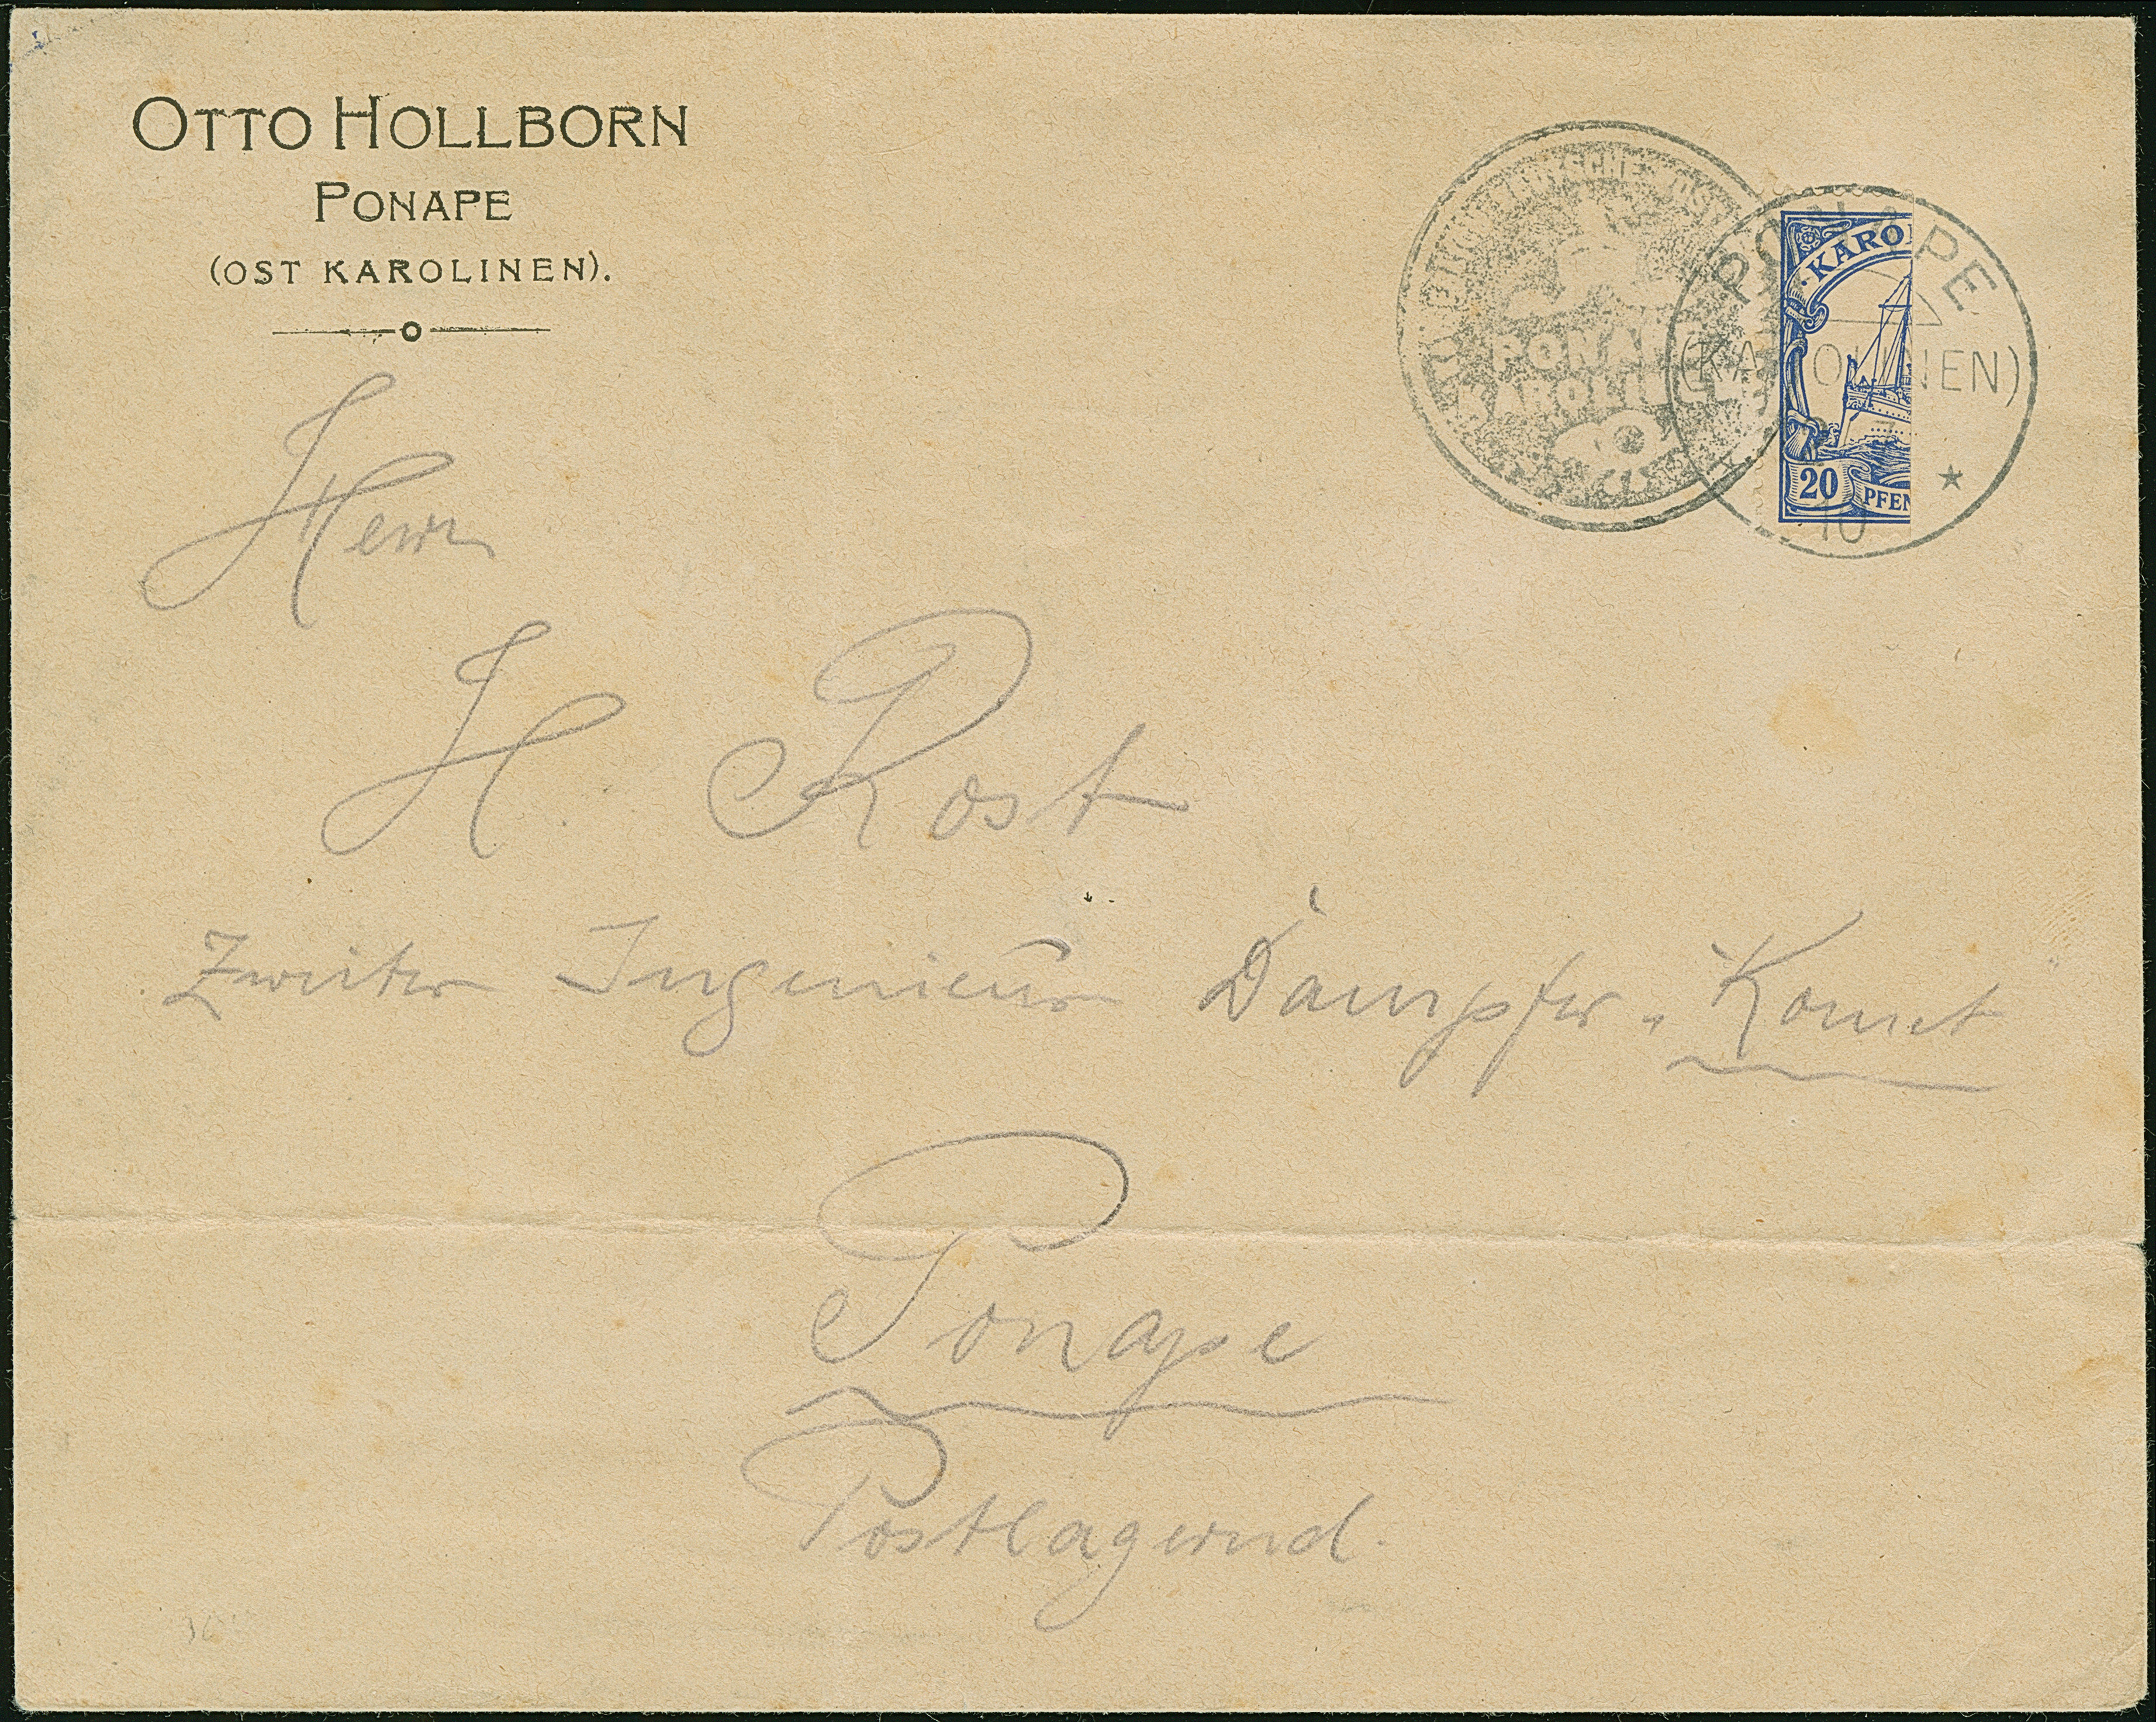 OTTO HOLLBORN
PONAPE
(OST KAROLINEN).
PONAPE
(KAROLINEN)
10
KARO
20 PFEN
PONAPE
KAROLINEN
Herrn
H. Rost
Zweiter Ingenieur Dampfer „Komet
Ponape
Postlagernd.